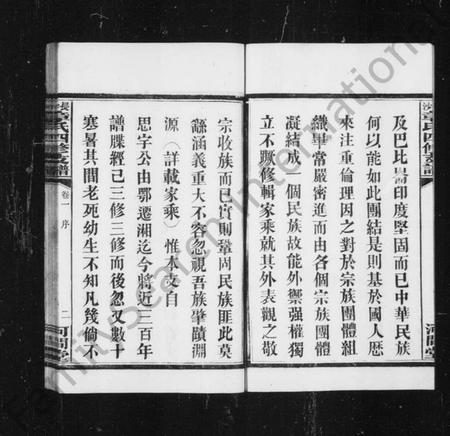 及巴比倫印度堅固而已中華民族
何以能如此團結是則基於國人歷
來注重倫理因之對於宗族團體組
織畢當嚴密進而由各個宗族團體
凝結成一個民族故能外禦強權獨
立不蹶修輯家乘就其外表觀之敬
宗收族而已實則鞏固民族匪此莫
繇涵義重大不容忽視吾族肇蹟淵
源（詳載家乘）惟本支自
思字公由鄂遷湘迄今將近三百年
譜牒經已三修三修而後忽又數十
寒暑其間老死幼生不知凡幾倘不
氏四修支譜
卷一 序
二
河間堂
FamilySearch International